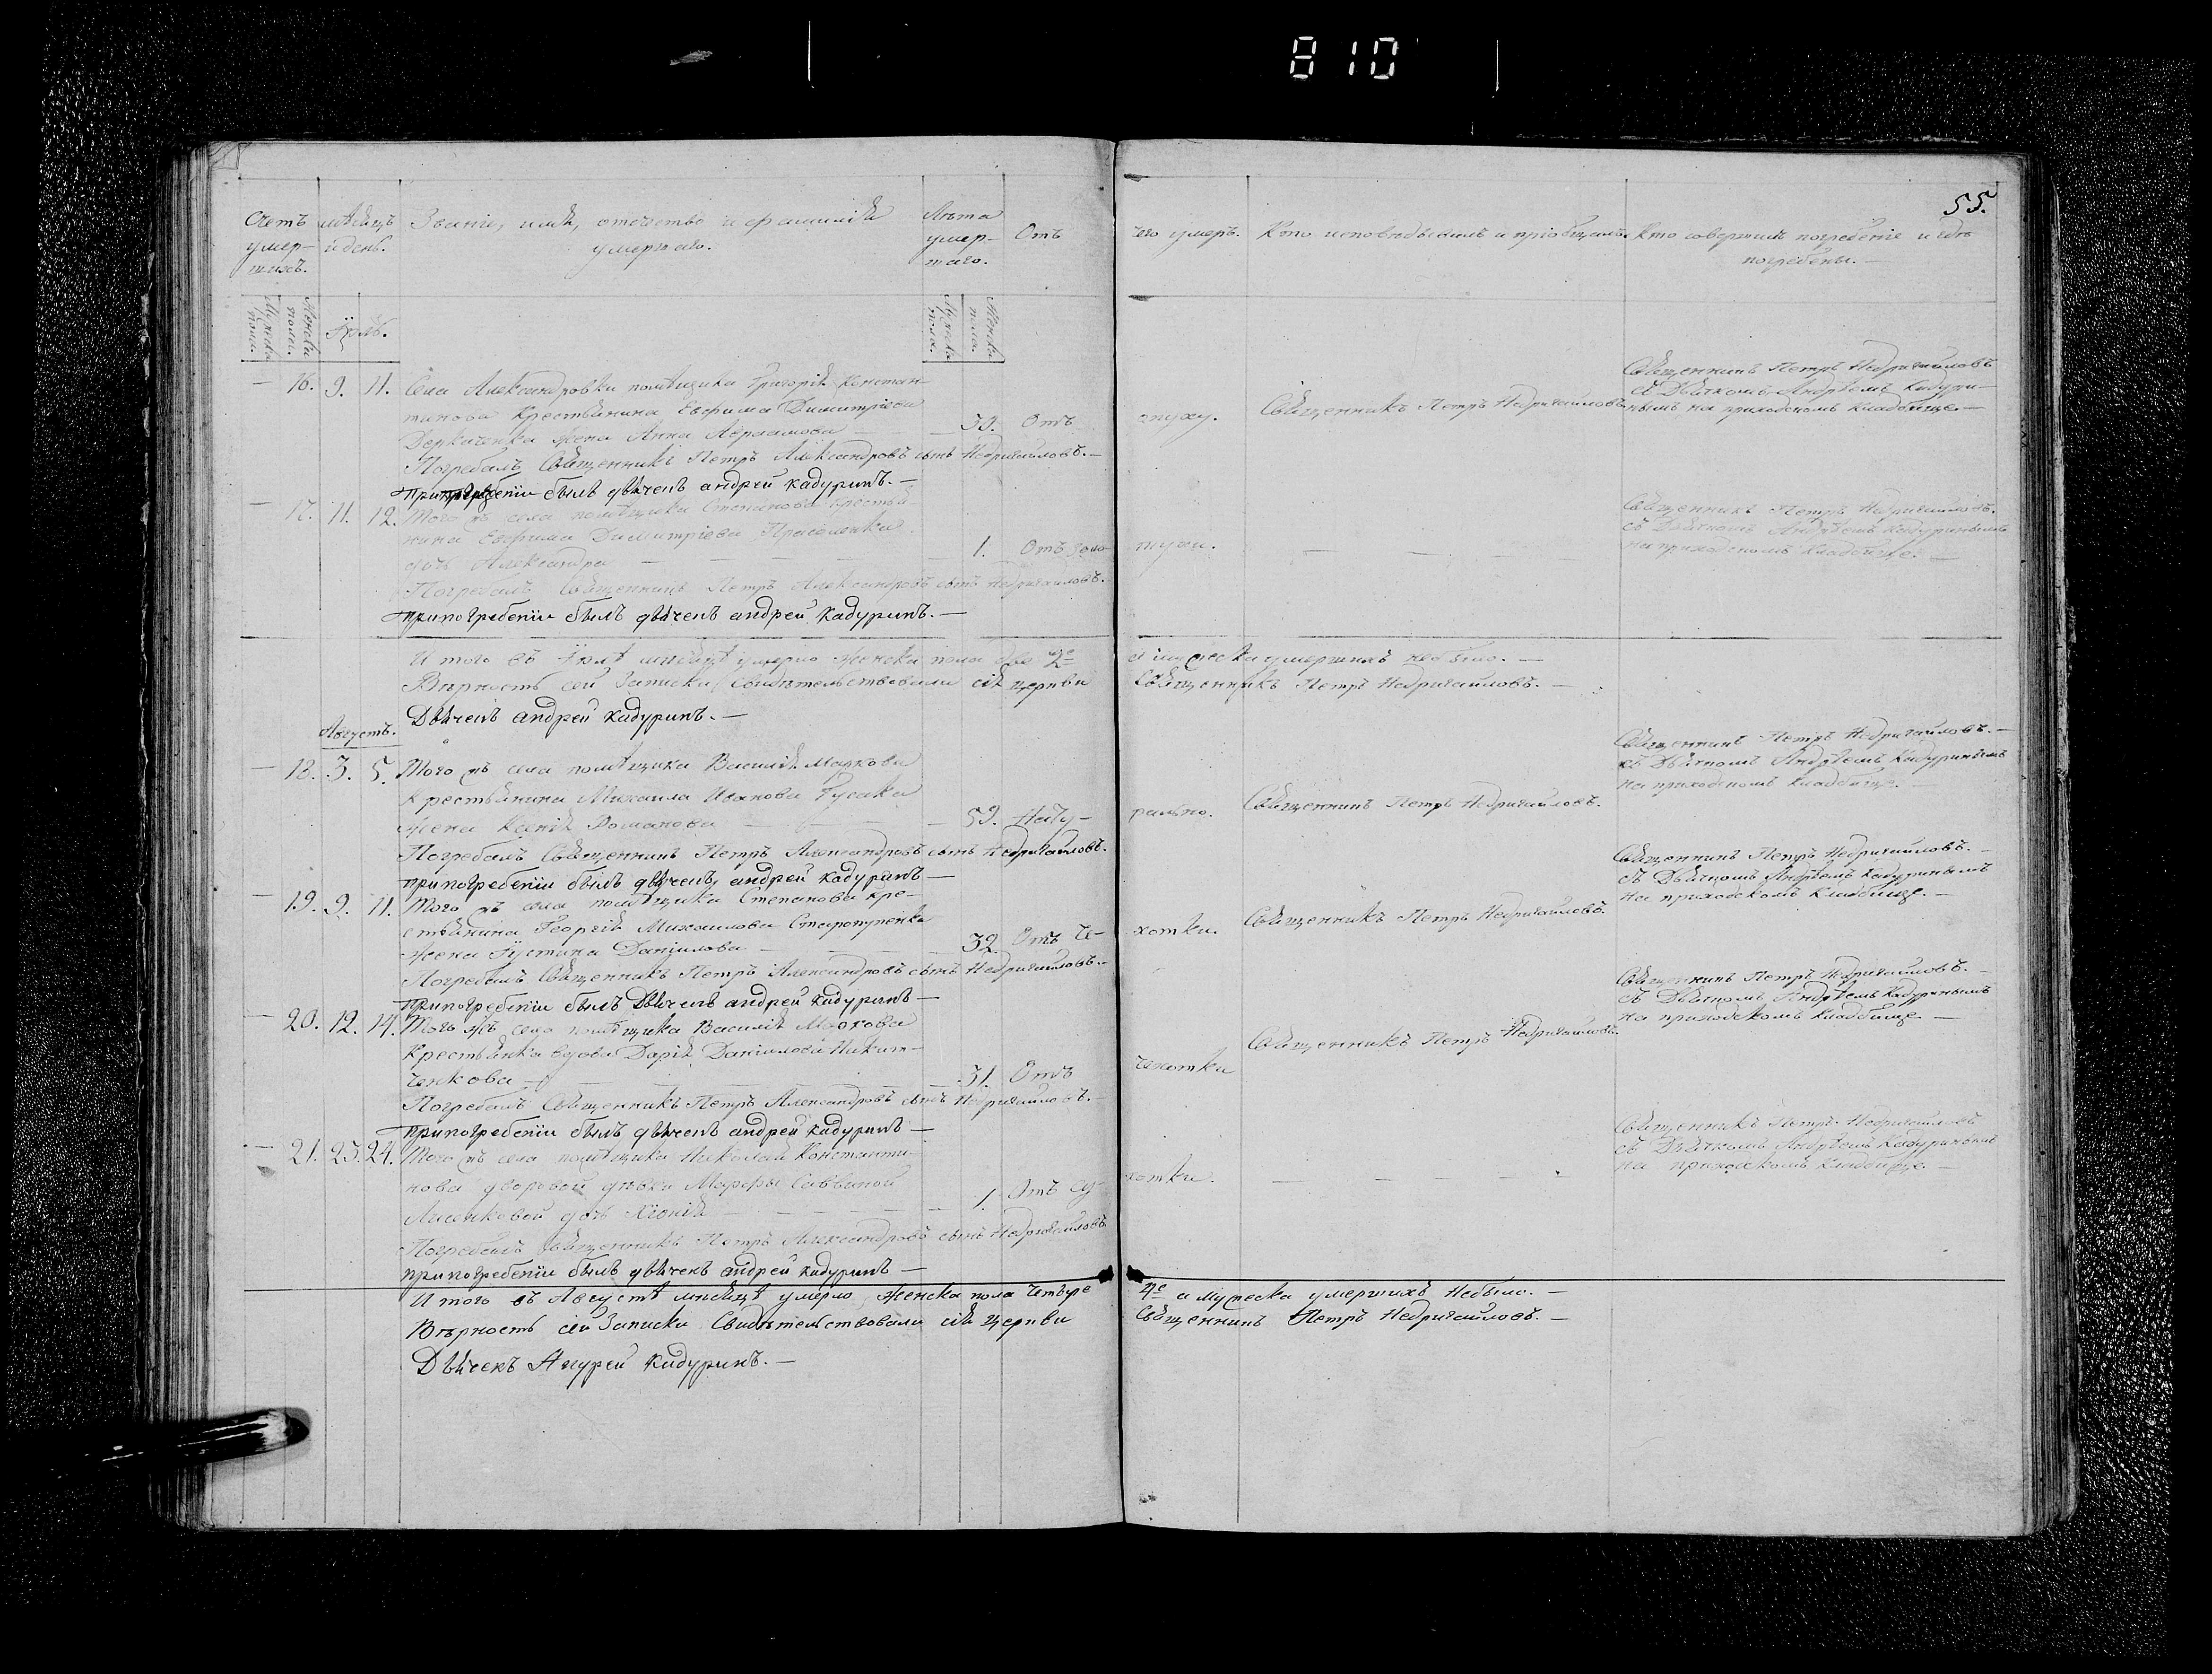 810
55.
Счетъ умер-
шихъ.
мѣсяцъ
и день.
Званіе, имя, отечество и фамилія
умершаго.
Лѣта
умер-
шаго.
Отъ
чего умеръ.
Кто исповѣдывалъ и пріобщалъ.
Кто совершилъ погребеніе и гдѣ
погребены. —
Мужска
пола.
Женска
пола.
Іюль.
Мужска
пола.
Женска
пола.
— 16. 9. 11. Села Александровки помѣщика Григорія Констан-
тинова крестьянина Евфима Димитріева
Деркаченка жена Анна Авраамова — 39. Отъ
опуху.
Священникъ Петръ Недригайловъ
Священникъ Петръ Недригайловъ
съ Дьячкомъ Андреемъ Кадури-
нымъ на приходскомъ кладбище. —
Погребалъ Священникъ Петръ Александровъ сынъ Недригайловъ. —
при погребеніи былъ дьячекъ андрей кадуринъ. —
— 17. 11. 12. Того жъ села помѣщика Степанова крестья-
нина Евфима Димитріева
дочь Александра — — — 1. Отъ золо-
тухи.
— — — —
Священникъ Петръ Недригайловъ.
съ Дьячкомъ Андреемъ Кадуринымъ
на приходскомъ кладбище. —
Погребалъ Священникъ Петръ Александровъ сынъ Недригайловъ. —
при погребеніи былъ дьячекъ андрей кадуринъ. —
И того въ Іюлѣ мѣсяцѣ умерло женска пола две 2е
а мужеска умершихъ небыло. —
Вѣрность сей Записки свидѣтельствовали сія церкви
Священникъ Петръ Недригайловъ. —
Дьячекъ андрей кадуринъ. —
Августъ.
— 18. 3. 5. Того жъ села помѣщика Василія Маркова
крестьянина Михаила Иванова Гусака
жена Ксенія Романова — — 59. Нату-
рально.
Священникъ Петръ Недригайловъ.
Священникъ Петръ Недригайловъ. —
съ Дьячкомъ Андреемъ Кадуринымъ
на приходскомъ кладбище. —
Погребалъ Священникъ Петръ Александровъ сынъ Недригайловъ.
при погребеніи былъ дьячекъ андрей кадуринъ —
— 19. 9. 11. Того жъ села помѣщика Степанова кре-
стьянина Георгія Михаилова
жена Іустина Даніилова — — 32. Отъ че-
хотки.
Священникъ Петръ Недригайловъ.
Священникъ Петръ Недригайловъ. —
съ Дьячкомъ Андреемъ Кадуринымъ
на приходскомъ кладбище. —
Погребалъ Священникъ Петръ Александровъ сынъ Недригайловъ. —
при погребеніи былъ Дьячекъ андрей кадуринъ —
— 20. 12. 14. Того жъ села помѣщика Василія Маркова
крестьянка вдова Дарія Даніилова Никит-
ченкова — — — 31. Отъ
чехотки
Священникъ Петръ Недригайловъ.
Священникъ Петръ Недригайловъ. —
съ Дьячкомъ Андреемъ Кадуринымъ
на приходскомъ кладбище —
Погребалъ Священникъ Петръ Александровъ сынъ Недригайловъ. —
при погребеніи былъ дьячекъ андрей кадуринъ —
— 21. 23. 24. Того жъ села помѣщика Николая Константи-
нова дворовой дѣвки Марфы Саввиной
Лисенковой дочь Хіонія — — — 1. Отъ су-
хотки.
— — — —
Священникъ Петръ Недригайловъ
съ Дьячкомъ Андреемъ Кадуринымъ
на приходскомъ кладбище. —
Погребалъ Священникъ Петръ Александровъ сынъ Недригайловъ
при погребеніи былъ дьячекъ андрей кадуринъ —
И того въ Августѣ мѣсяцѣ умерло, женска пола четыре
4е а мужеска умершихъ небыло. —
Вѣрность сей Записки свидѣтельствовали сія церкви
Священникъ Петръ Недригайловъ. —
Дьячекъ Андрей кадуринъ. —